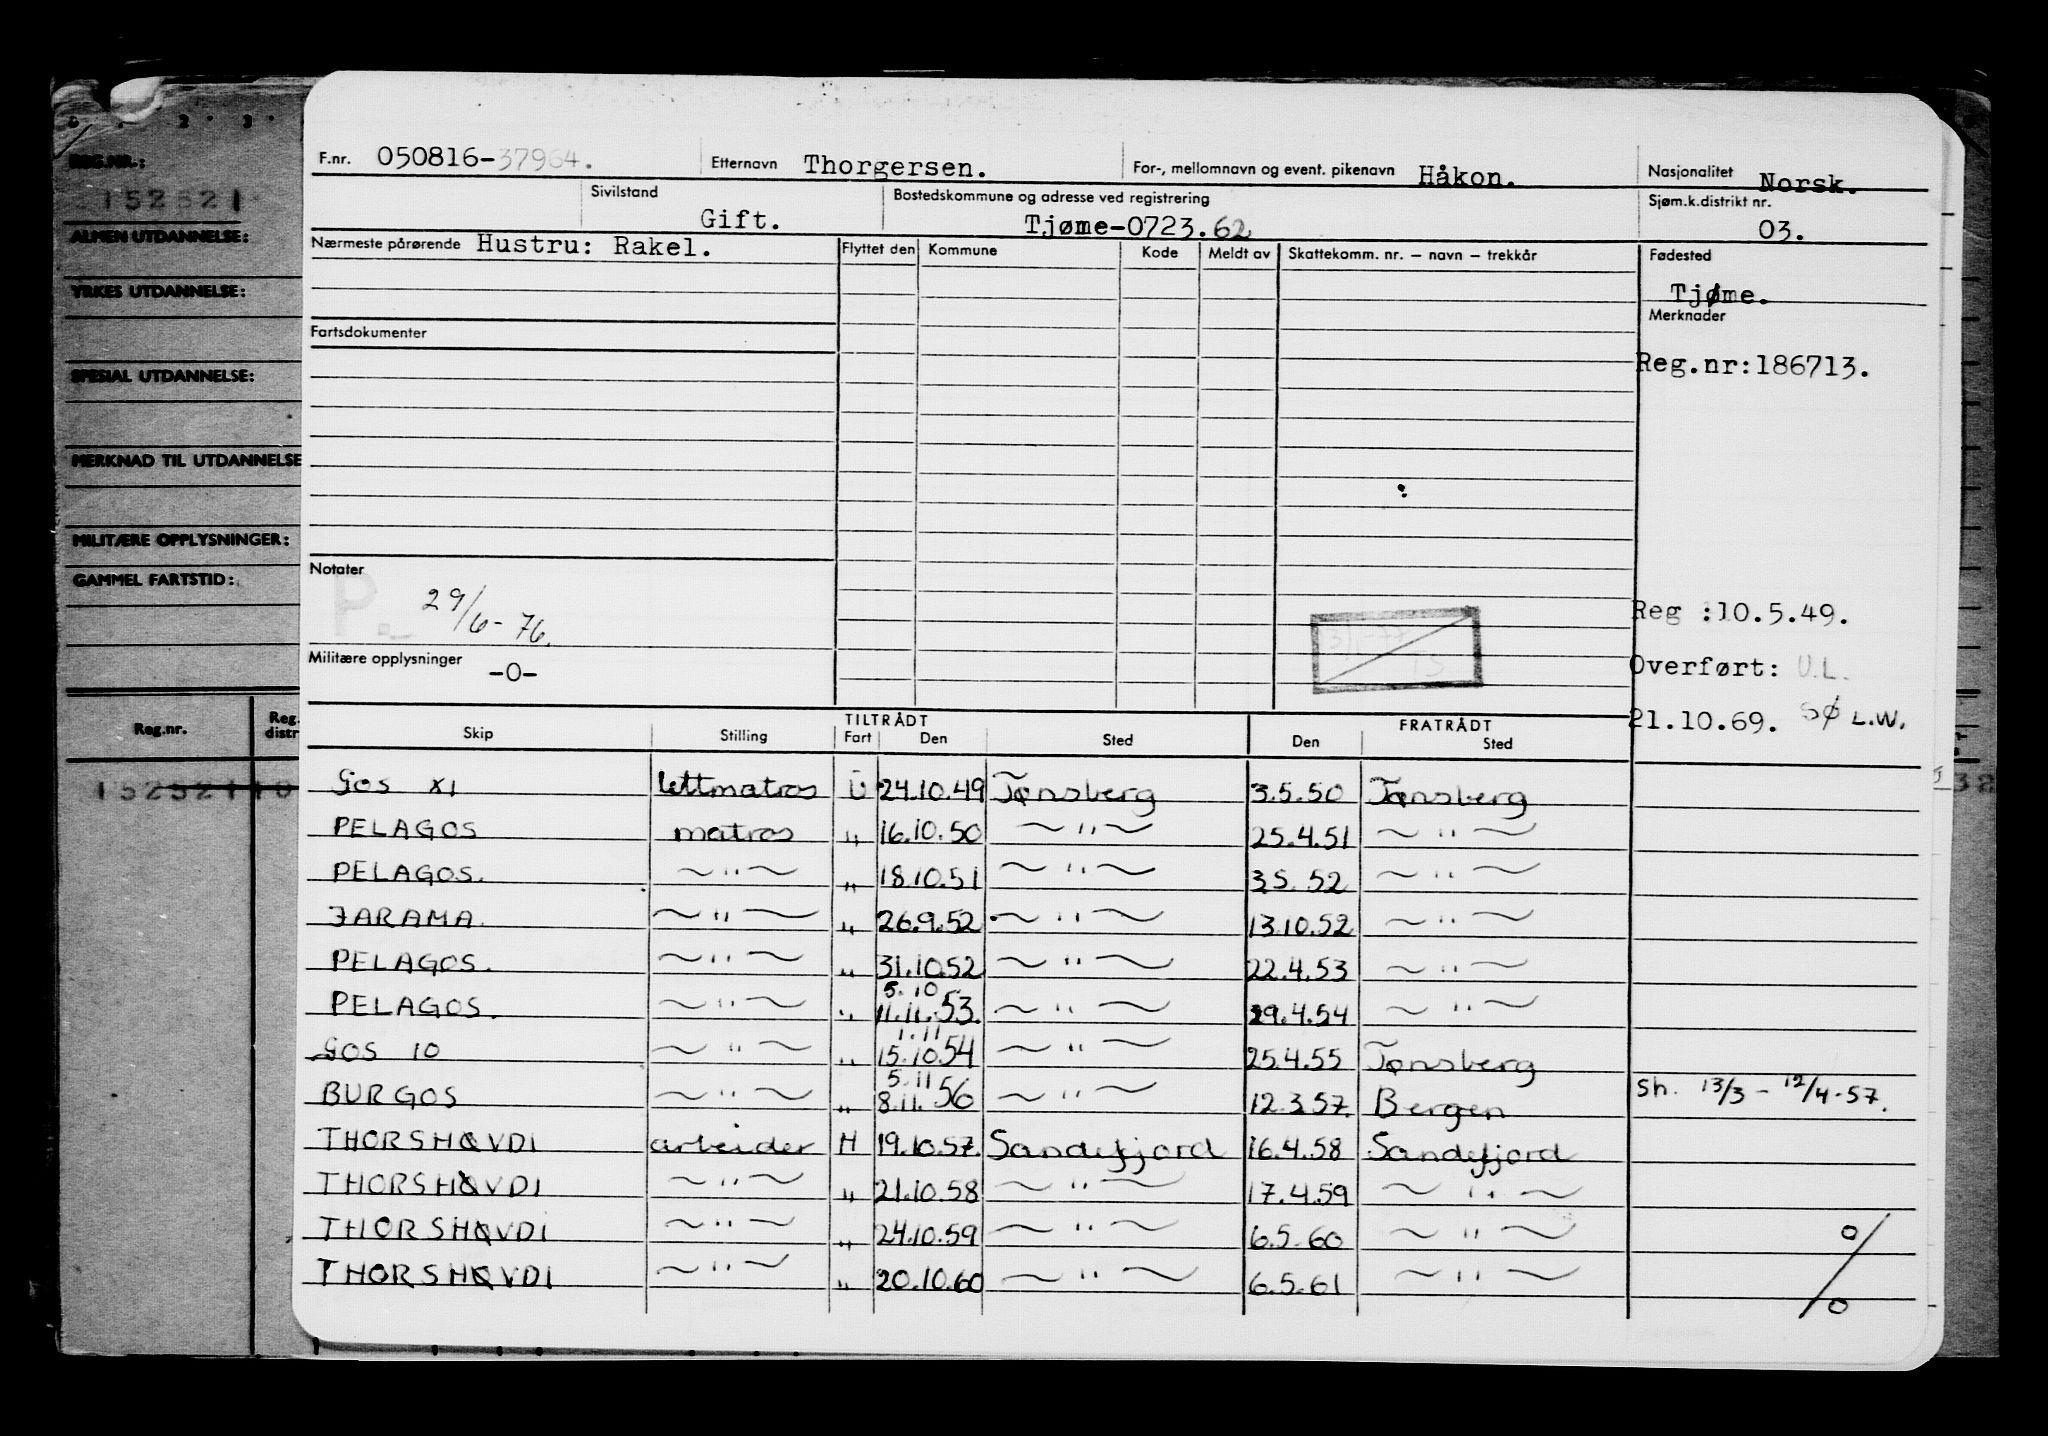 REG.NR.:
152521
ALMEN UTDANNELSE:
YRKES UTDANNELSE:
SPESIAL UTDANNELSE:
MERKNAD TIL UTDANNELSE
MILITÆRE OPPLYSNINGER:
GAMMEL FARTSTID:
Reg.nr. Reg. distr
152521 10
F.nr. 050816-37964. Etternavn Thorgersen. For-, mellomnavn og event. pikenavn Håkon. Nasjonalitet Norsk.
Sivilstand Gift. Bostedskommune og adresse ved registrering Tjøme-0723.62 Sjøm.k.distrikt nr. 03.
Nærmeste pårørende Hustru: Rakel. Flyttet den Kommune Kode Meldt av Skattekomm. nr. – navn – trekkår Fødested
Tjøme.
Fartsdokumenter Merknader
Reg.nr:186713.
Notater
P.
29/6-76.
Reg :10.5.49.
Militære opplysninger -0-
Overført: U.L.
21.10.69. SØ L.W.
TILTRÅDT FRATRÅDT
Skip Stilling Fart Den Sted Den Sted
GOS XI lettmatros U 24.10.49 Tønsberg 3.5.50 Tønsberg
PELAGOS matros " 16.10.50 ~ " ~ 25.4.51 ~ " ~
PELAGOS. ~ " ~ " 18.10.51 ~ " ~ 3.5.52 ~ " ~
JARAMA. ~ " ~ " 26.9.52 ~ " ~ 13.10.52 ~ " ~
PELAGOS. ~ " ~ " 31.10.52 ~ " ~ 22.4.53 ~ " ~
5.10
PELAGOS. ~ " ~ " 11.11.53 ~ " ~ 29.4.54 ~ " ~
1.11
GOS 10 ~ " ~ " 15.10.54 ~ " ~ 25.4.55 Tønsberg
5.11
BURGOS ~ " ~ " 8.11.56 ~ " ~ 12.3.57. Bergen Sh. 13/3 - 12/4-57.
THORSHØVDI arbeider H 19.10.57. Sandefjord 16.4.58 Sandefjord
THORSHØVDI ~ " ~ " 21.10.58 ~ " ~ 17.4.59 ~ " ~
THORSHØVDI ~ " ~ " 24.10.59 ~ " ~ 6.5.60 ~ " ~
THORSHØVDI ~ " ~ " 20.10.60 ~ " ~ 6.5.61 ~ " ~